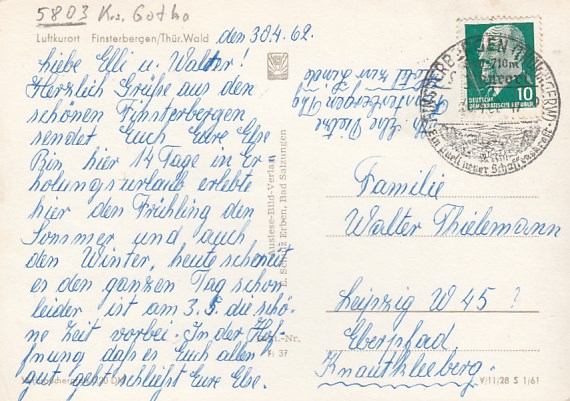 5803 Krs. Gotha
Luftkurort Finsterbergen/Thür. Wald
den 30.4.62.
Liebe Elli u. Walter!
Herzlich Grüße aus den
schönen Finsterbergen
sendet Euch Eure Else
Bin hier 14 Tage in Er
holungsurlaub erlebte
hier den Frühling den
Sommer und auch
den Winter, heute schneit
es den ganzen Tag schon
leider ist am 3.5. die schö-
ne Zeit vorbei. In der Hof-
nung daß es Euch allen
gut geht schließt Eure Else.
Auslese-Bild-Verlag
Erben, Bad Salzungen
Finsterbergen Thg
Hotel zur Linde
10
DEUTSCHE
DEMOKRATISCHE REPUBLIK
Familie
Walter Thielemann
Leipzig W 45 ?
Eberpfad.
Knauthkleeberg.
V/11/28 S 1/61